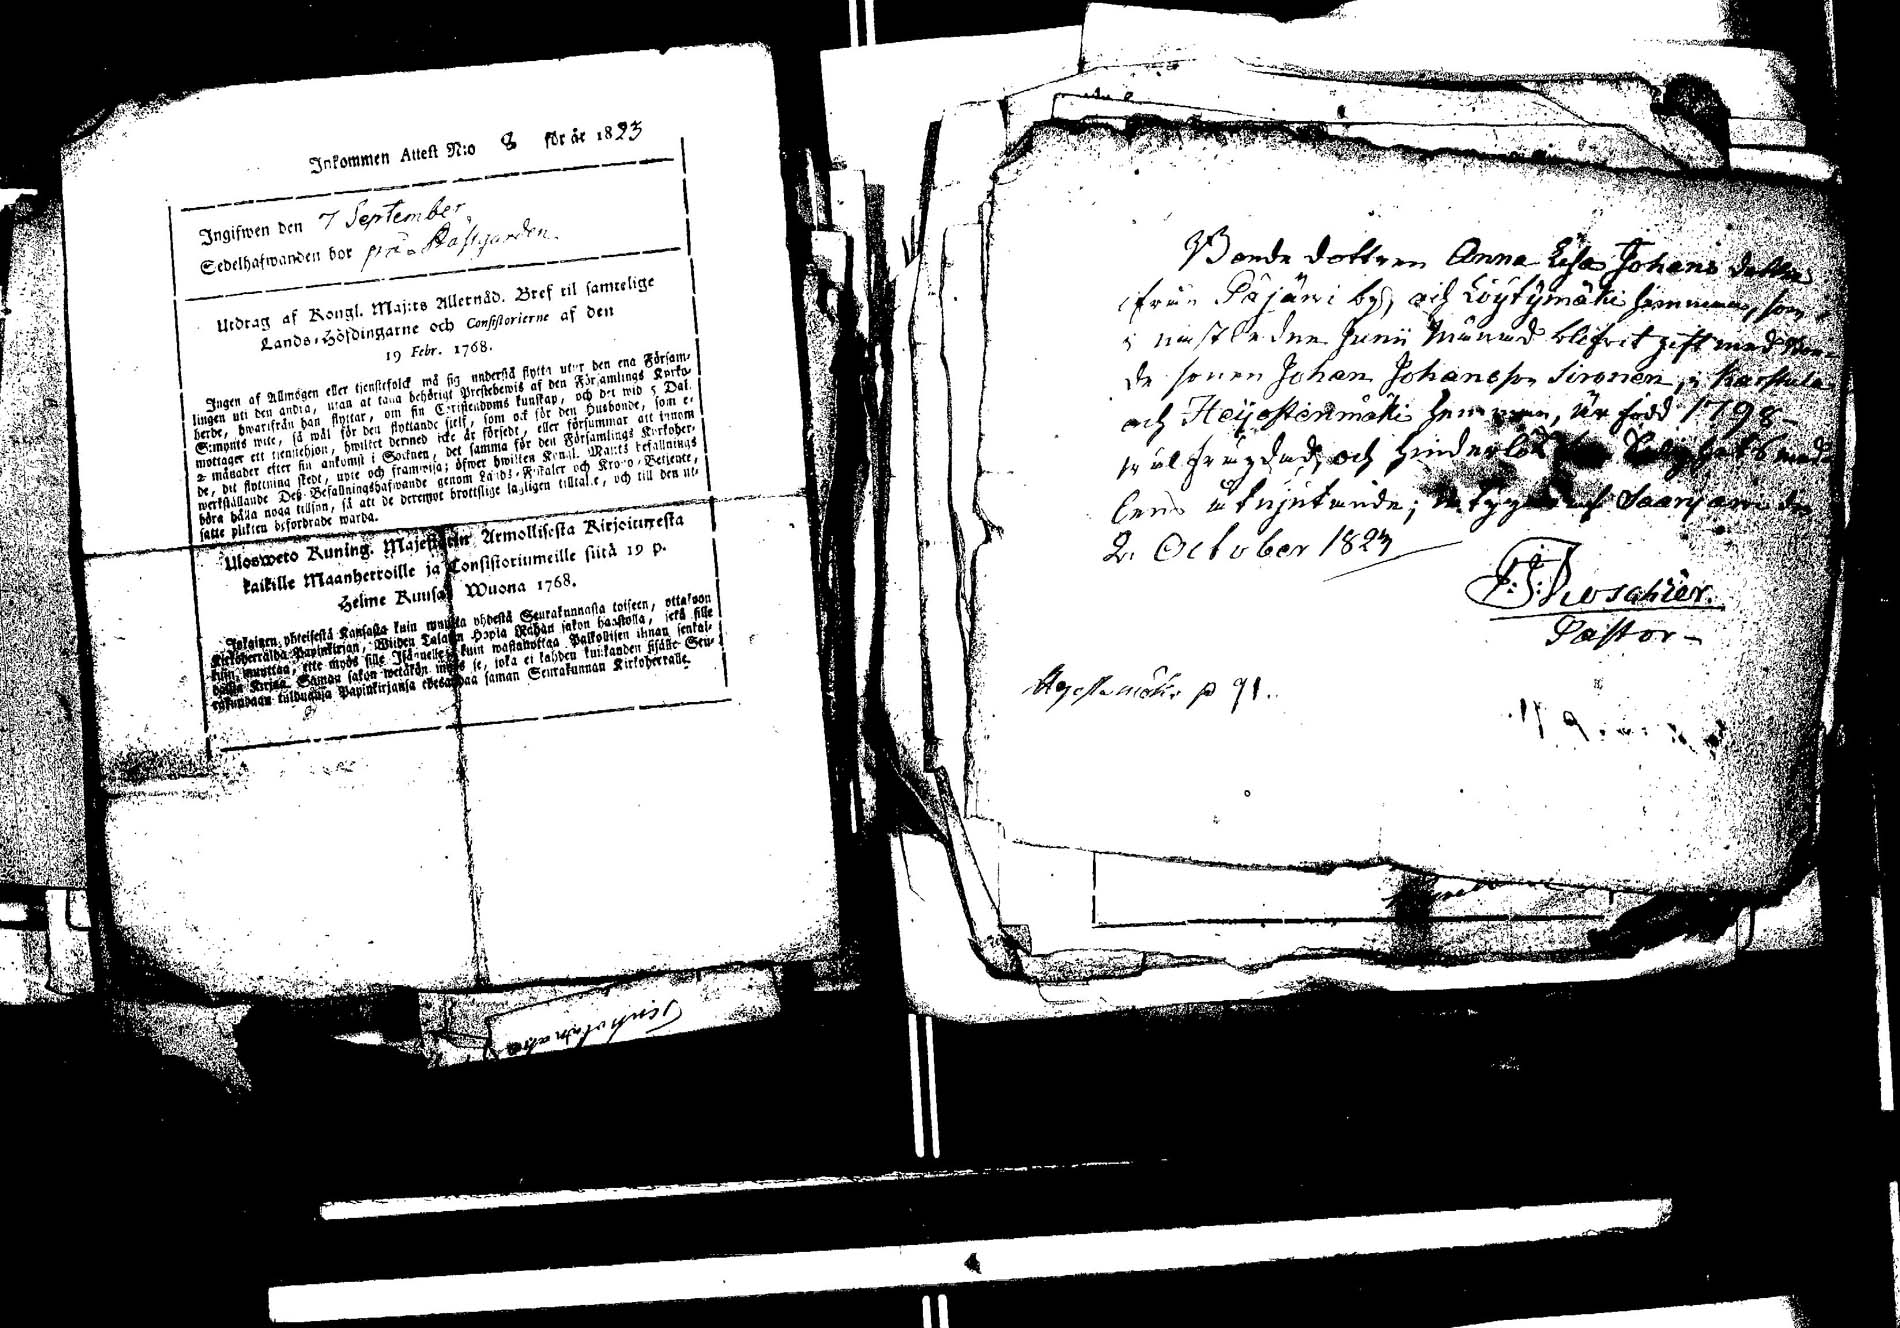 Inkommen Attest N:o 8 för år 1823
Ingifwen den 7 September
Sedelhafwanden bor på Raftgarden
Utdrag af Kongl. Maj:ts Allernåd. Bref til samtelige
Lands-Höfdingarne och Consistorierne af den
19 Febr. 1768.
Ingen af Allmogen eller tjenstefolck må sig understå flytta utur den ena Försam-
lingen uti den andra, utan at taga behörigt Prestebewis af den Församlings Kyrko-
herde, hwarifrån han flyttar, om sin Christendoms kunskap, och det wid 5 Dal.
S:mynts wite, så wäl för den flyttande sjelf, som ock för den Husbonde, som e-
mottager ett tjenstehjon, hwilket dermed icke är försedt, eller försummar att innom
2 månader efter sin ankomst i Socknen, det samma för den Församlings Kyrkoher-
de, dit flyttning skedt, upte och framwisa; öfwer hwilken Kongl. Maj:ts befallnings
werkställande Deß Befallningshafwande genom Lands-Fiskaler och Krono-Betjente,
böra hålla noga tillsyn, så att de deremot brottslige lagligen tilltalte, och till den ut-
satte plikten befordrade warda.
Ulosweto Kuning. Majestetin Armollisesta Kirjoituxesta
kaikille Maanherroille ja Consistoriumeille siitä 19 p.
Helme Kuusa Wuona 1768.
Jokainen yhteisestä Kansasta kuin muutta yhdestä Seurakunnasta toiseen, ottakoon
Kirkoherralda Papinkirjan, Wiiden Talarin Hopia Rahan sakon haastolla, sekä sille
kuin muuttaa, ette myös sille Isännelle kuin wastanottaa Palkollisen ilman senkal-
daista Kirjaa. Saman sakon wetäkön myös se, joka ei kahden kuukauden sisälle Seu-
rakundaan tulduansa Papinkirjansa edesanna saman Seurakunnan Kirkoherralle.
Bonde dottren Anna Lisa Johans dotter
ifrån Päjärvi by, och Löytymäki hemman, som
i nästledne Junii Månad blifvit gift med Bon-
de sonen Johan Johansson Sironen, i Karstula
och Heijostenmäki hemman, är född 1798
väl frägdad, och hinderlös
åtnjutande; Saarijärvi den
2. October 1823
Roschier.
Pastor
p 91.